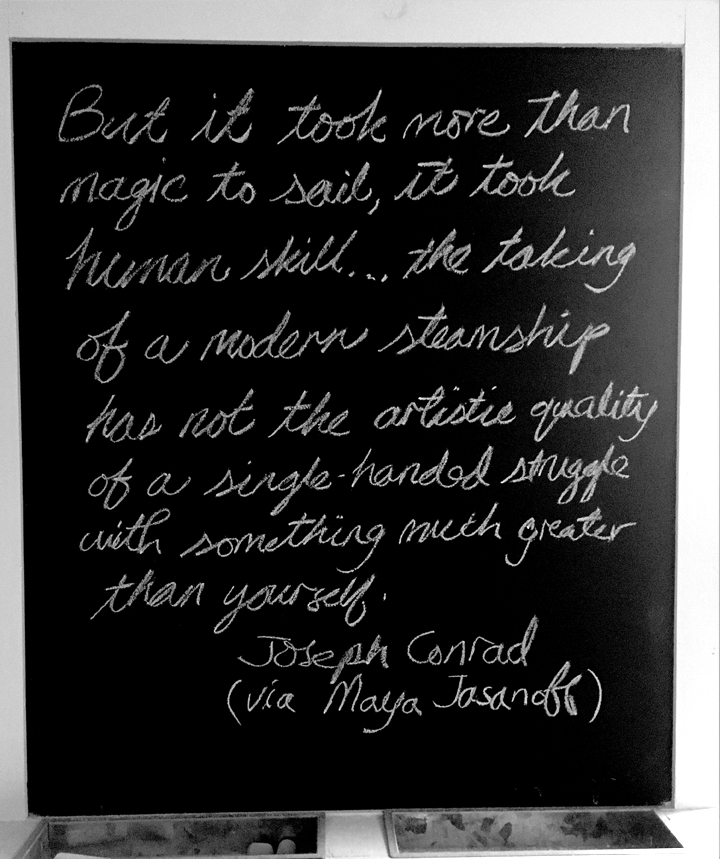 But it took more than
magic to sail, it took
human skill... the taking
of a modern steamship
has not the artistic quality
of a single-handed struggle
with something much greater
than yourself.
Joseph Conrad
(via Maya Jasanoff)